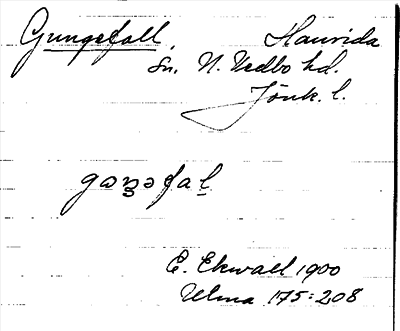 Gungefall, Haurida
sn. N. Vedbo hd.
Jönk. l.
gωŋəfaɫ
E. Ekwall 1900
Ulma 175:208